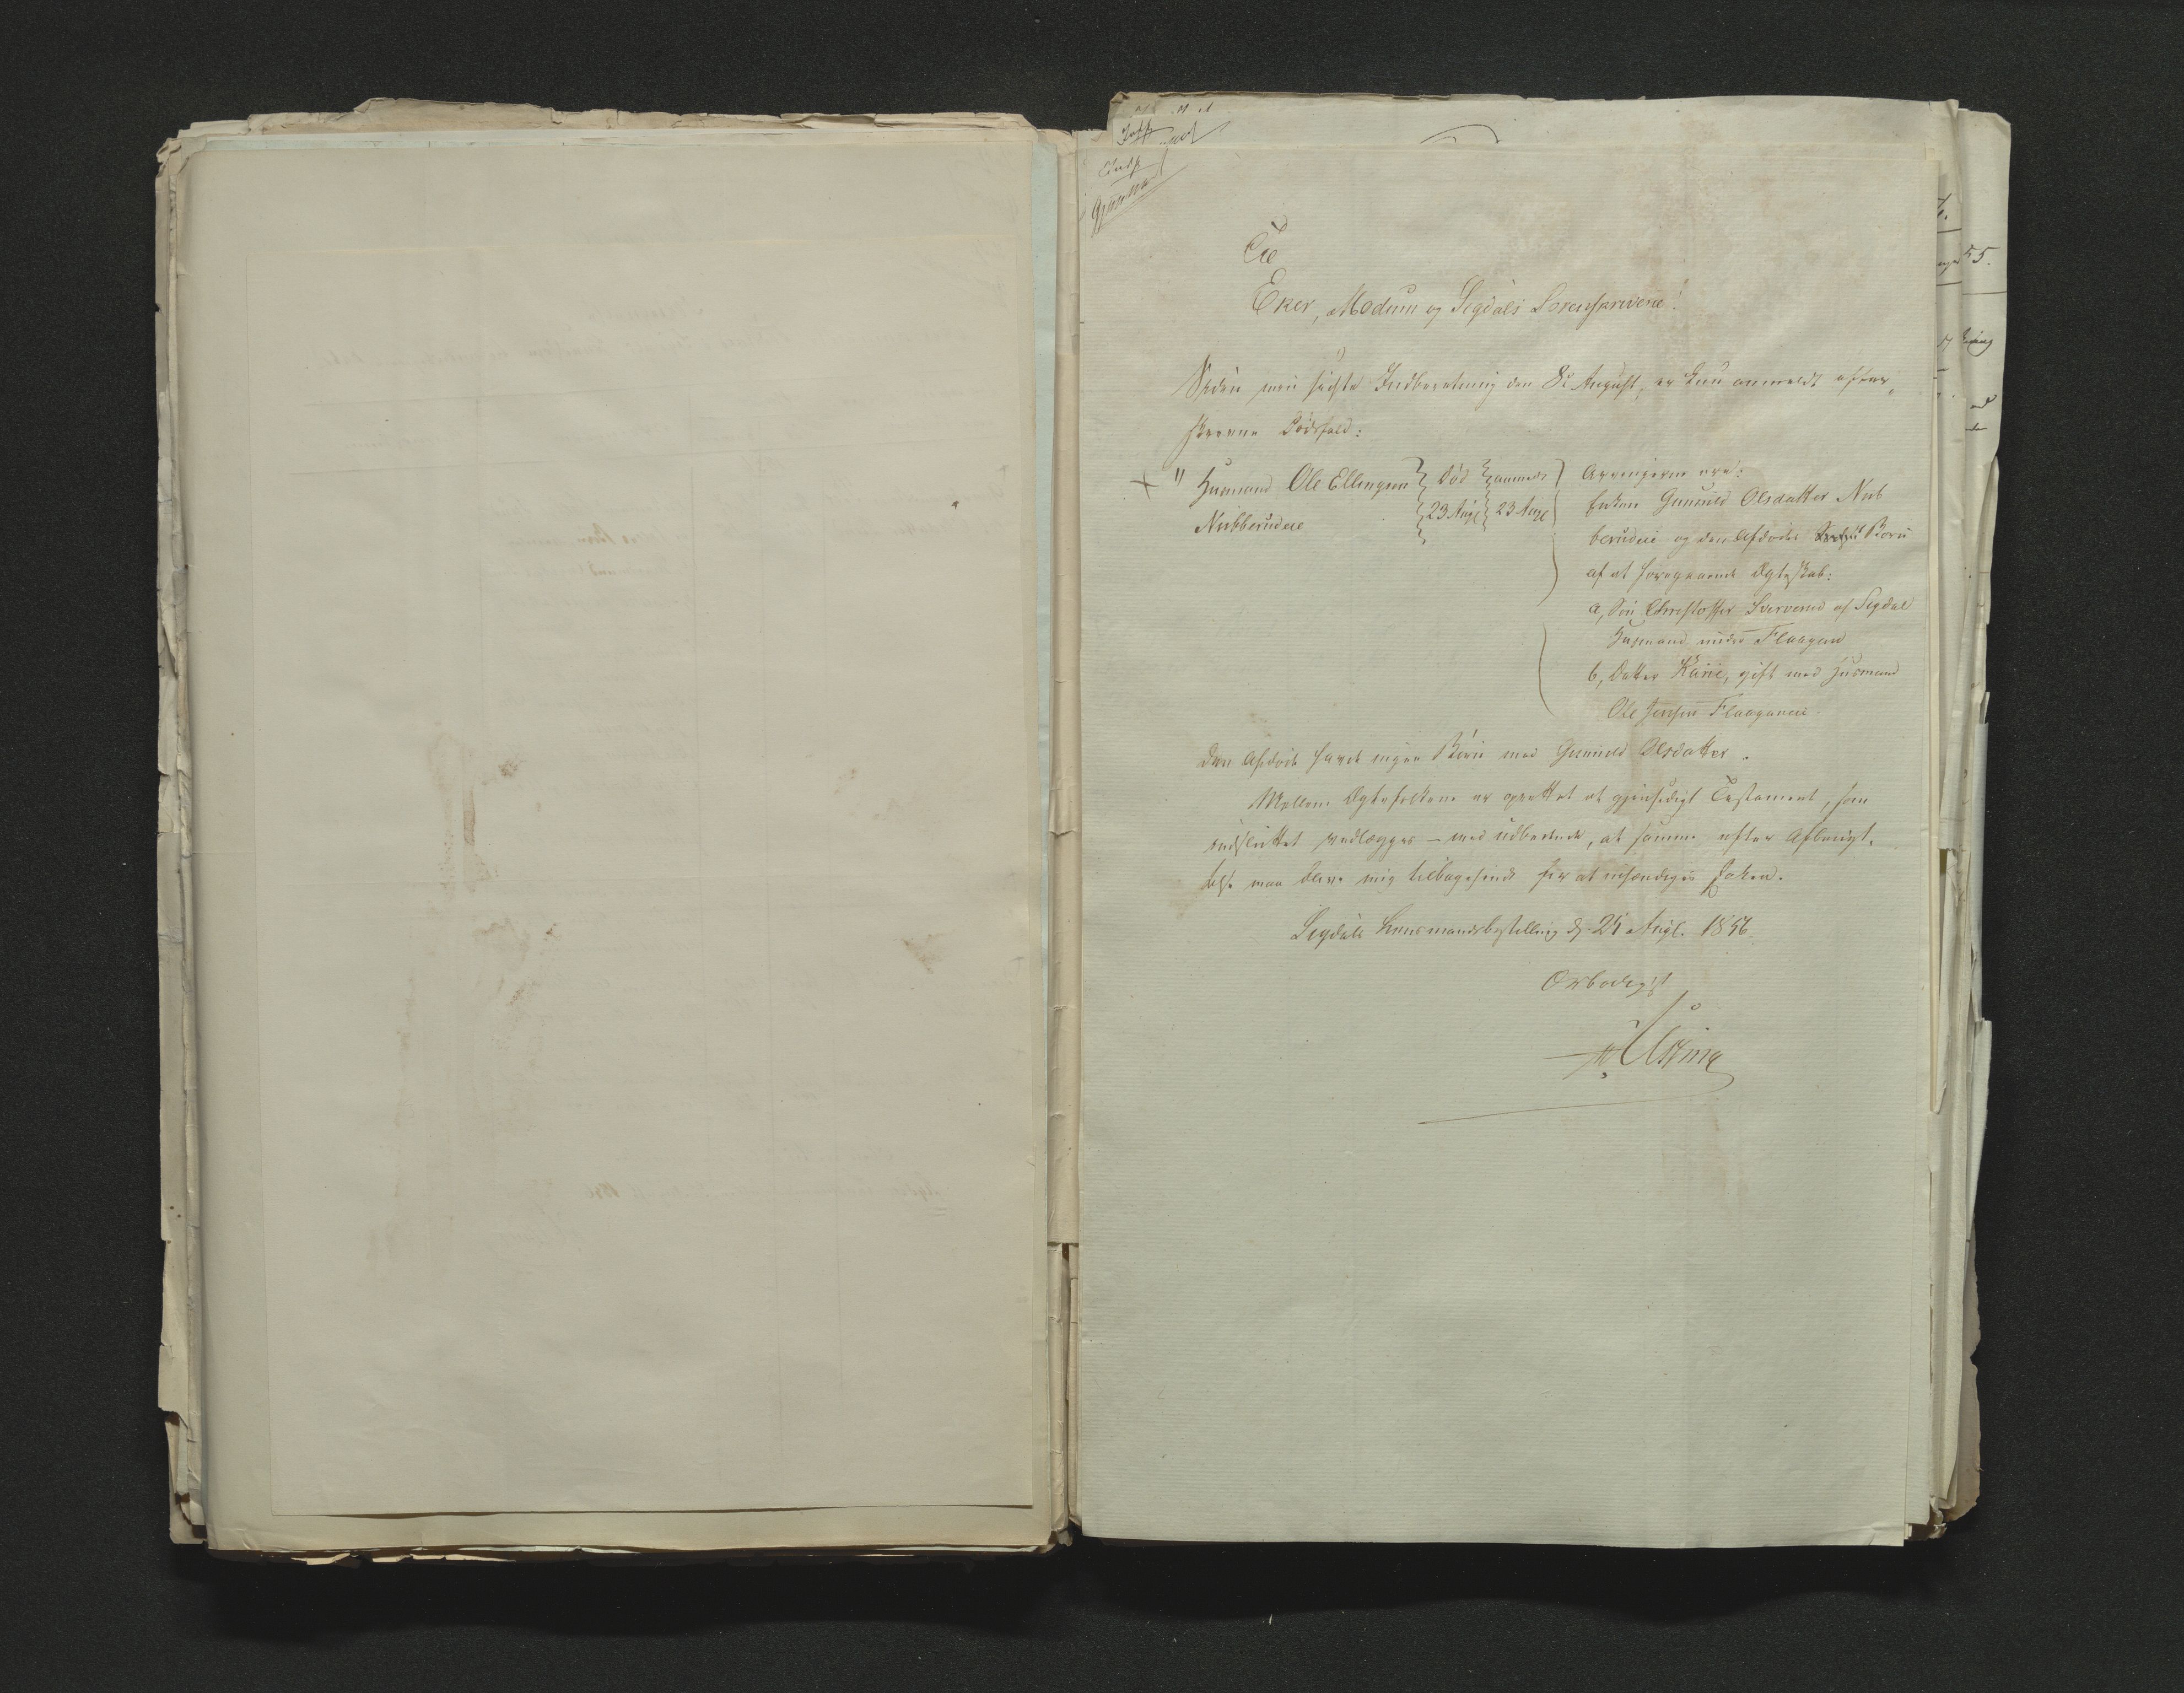 Til
Eker, Modum og Sigdals Sorenskriverie!
Siden min sidste Indberetning den 8de August, er kun anmeldt efter-
skrevne Dødsfald:
Husmand Ole Ellingsen
Nubberudeie
Død
23 Aug
anmeldt
23 Aug
Arvingerne ere:
Enken Gunnild Olsdatter Nub
berudeie og den Afdødes Børn
af et foregaaende Ægteskab:
a, Søn Christoffer af Sigdal
Husmand under Flaagan
b, Datter Karie, gift med Husmand
Ole Jensen Flaaganeie.
Den Afdøde havde ingen Børn med Gunnild Olsdatter.
Mellem Ægtefolkene er oprettet et gjensidigt Testament, som
indsluttet vedlægges – med Udbedende, at samme efter Afbenyt-
telse maa blive mig tilbagesendt for at Sagen.
Sigdals Lensmandsbestilling d. 25 Augt. 1856
Ærbødigst